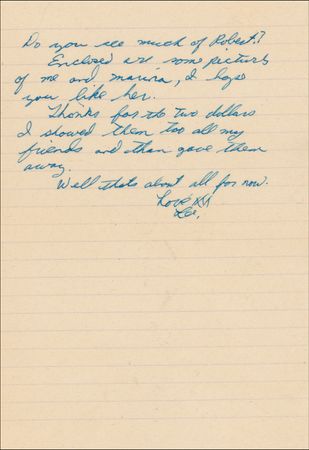 Do you see much of Robert?
Enclosed are some picturs
of me and marina, I hope
you like her.
Thanks for the two dollars
I showed them too all my
friends and than gave them
away.
Well thats about all for now.
Love XX
Lee,